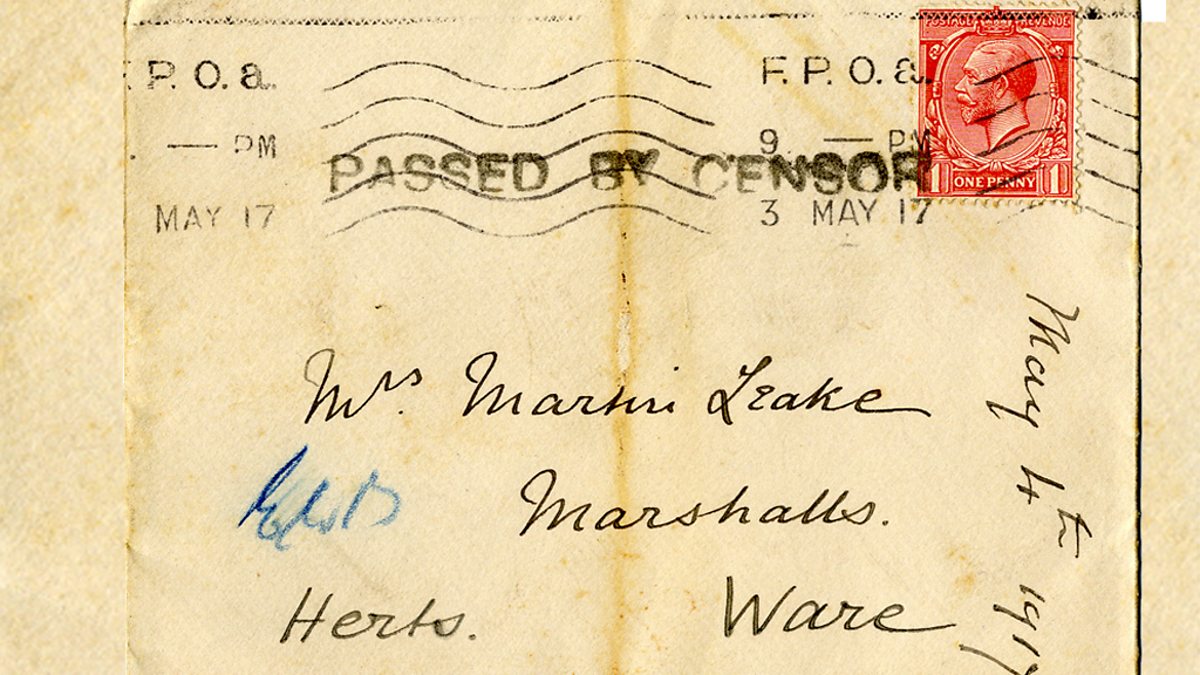 F. P. O. a. F. P. O. a.
— PM 9 — PM
MAY 17 3 MAY 17
PASSED BY CENSOR
POSTAGE REVENUE
1 ONE PENNY 1
Mrs. Martin Leake
Marshalls.
Herts. Ware
May 4th 1917